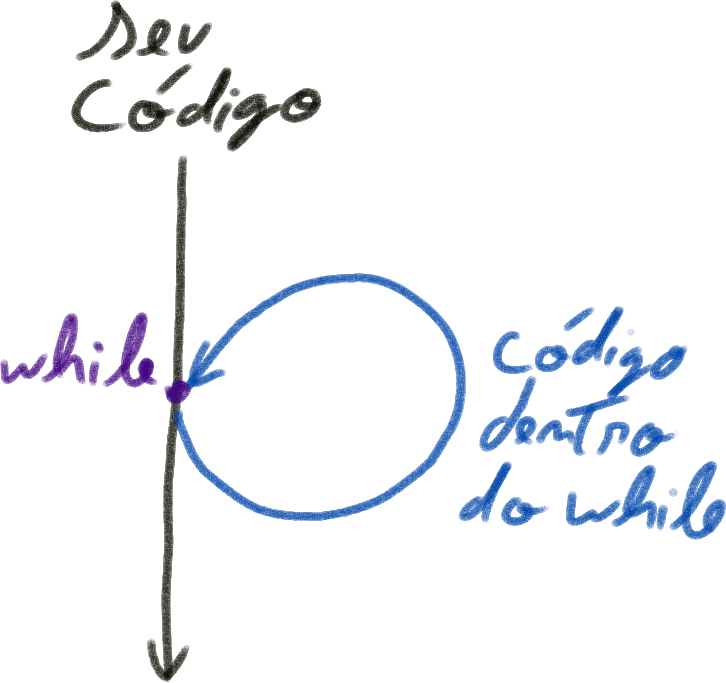 seu
código
while
código
dentro
do while